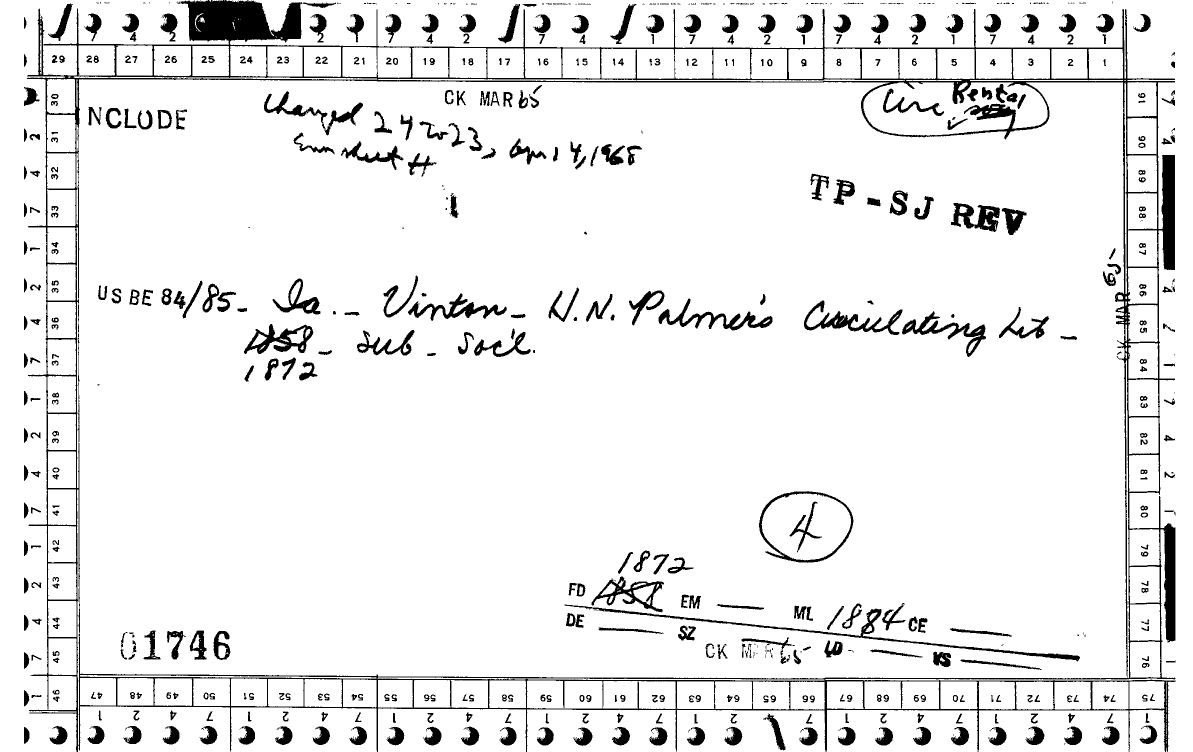 7 4 2 2 1 7 4 2 1 7 4 2 1 7 4 2 1 7 4 2 1
29 28 27 26 25 24 23 22 21 20 19 18 17 16 15 14 13 12 11 10 9 8 7 6 5 4 3 2 1
CK MAR 65
NCLUDE
Changed 24 to 23, Apri 4, 1968
Circ Rental
TP - SJ REV
US BE 84/85 - Ia. - Vinton - H.N. Palmer's Circulating Lib -
1858 - Sub - Soc'l.
1872
CK MAR 65
4
1872
FD 1858 EM ML 1884 CE
DE SZ LD VS
CK MAR 65
01746
30 31 32 33 34 35 36 37 38 39 40 41 42 43 44 45 46
91 90 89 88 87 86 85 84 83 82 81 80 79 78 77 76
47 48 49 50 51 52 53 54 55 56 57 58 59 60 61 62 63 64 65 66 67 68 69 70 71 72 73 74 75
1 2 4 7 1 2 4 7 1 2 4 7 1 2 4 7 1 2 4 7 1 2 4 7 1 2 4 7